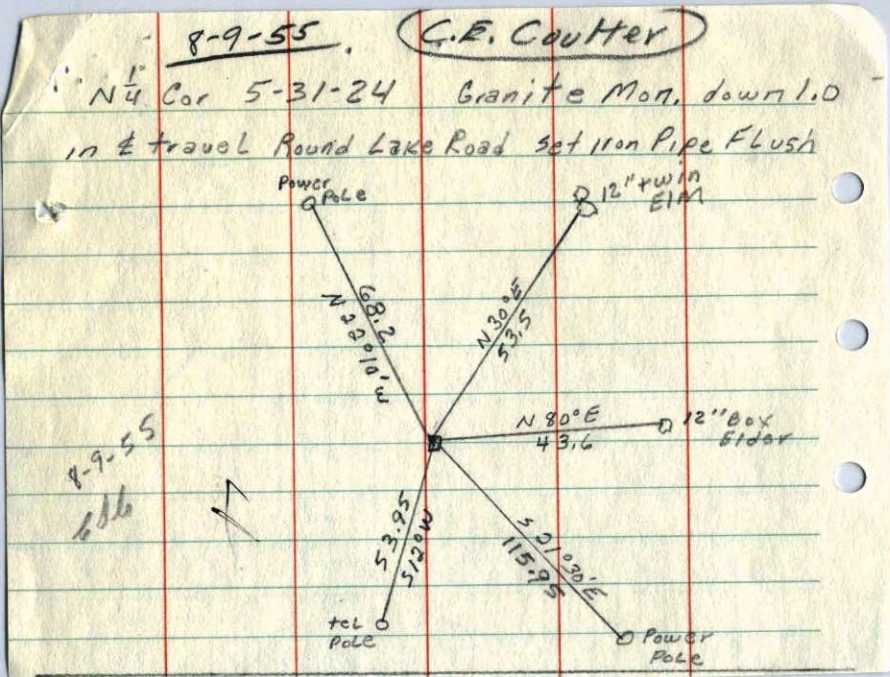 8-9-55. C.E. Coulter
N 1/4 Cor 5-31-24 Granite Mon. down 1.0
in ℄ travel Round Lake Road set iron Pipe Flush
Power
Pole
12" twin
Elm
68.2
N 22°10'W
N 30°E
53.5
N 80°E
43.6
12" Box
Eldor
8-9-55
53.95
S12°W
S 21°30'E
115.95
tel
Pole
Power
Pole